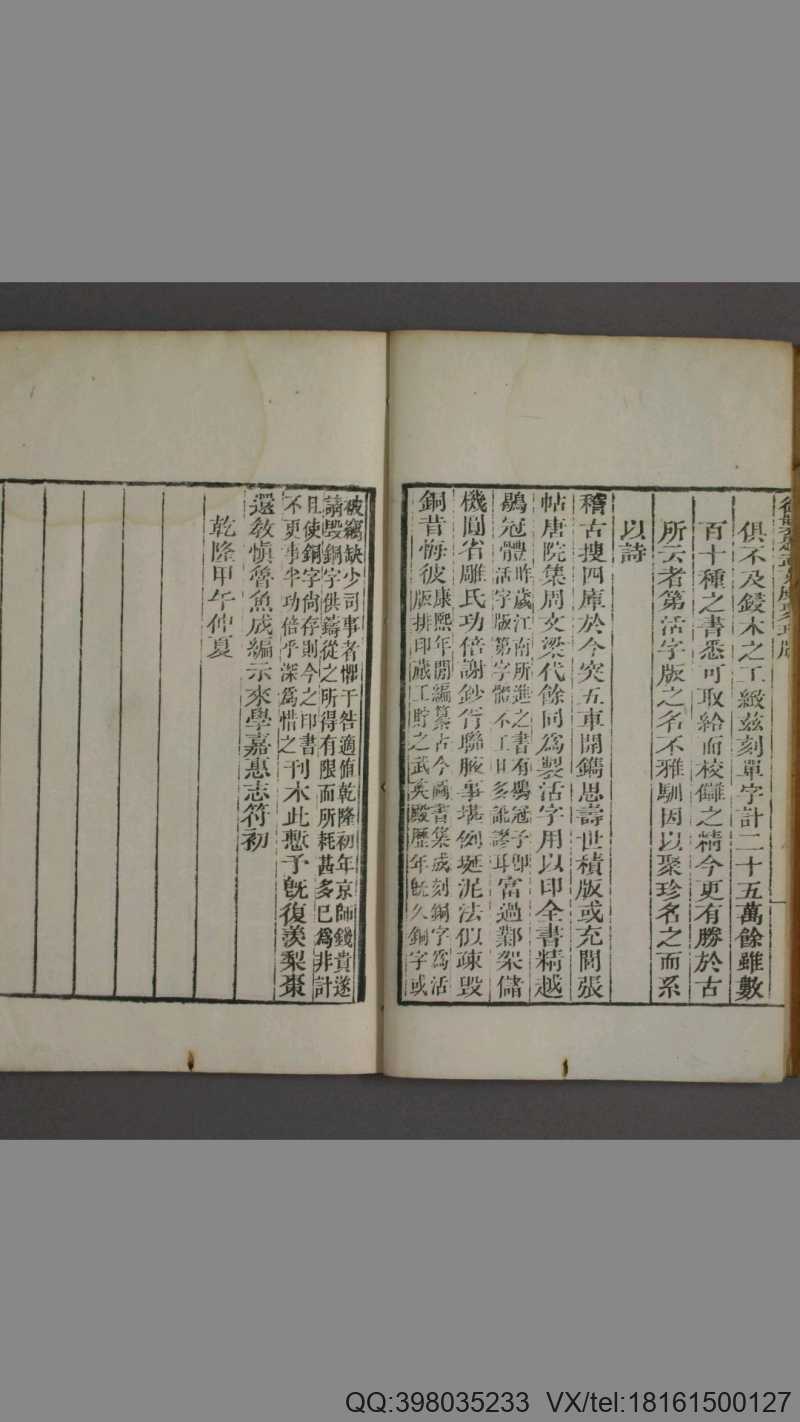 俱不及鋟木之工緻茲刻單字計二十五萬餘雖數
百十種之書悉可取給而校讎之精今更有勝於古
所云者第活字版之名不雅馴因以聚珍名之而系
以詩
稽古搜四庫於今突五車開鐫思壽世積版或充閭張
帖唐院集周文梁代餘同為製活字用以印全書精越
鶡冠體昨歲江南所進之書有鶡冠子卽活字版第字體不工且多訛謬耳富過鄴架儲
機圓省雕氏功倍謝鈔胥聯腋事堪例埏泥法似疎毀
銅昔悔彼康熙年間編纂古今圖書集成刻銅字為活版排印蕆工貯之武英殿歷年旣久銅字或
被竊缺少司事者懼干咎適值乾隆初年京師錢貴遂請毀銅字供鑄從之所得有限而所耗甚多已為非計
且使銅字尙存則今之印書不更事半功倍乎深為惜之刊木此慙予旣復羨梨棗
還敎愼魯魚成編示來學嘉惠志符初
乾隆甲午仲夏
QQ:398035233 VX/tel:18161500127